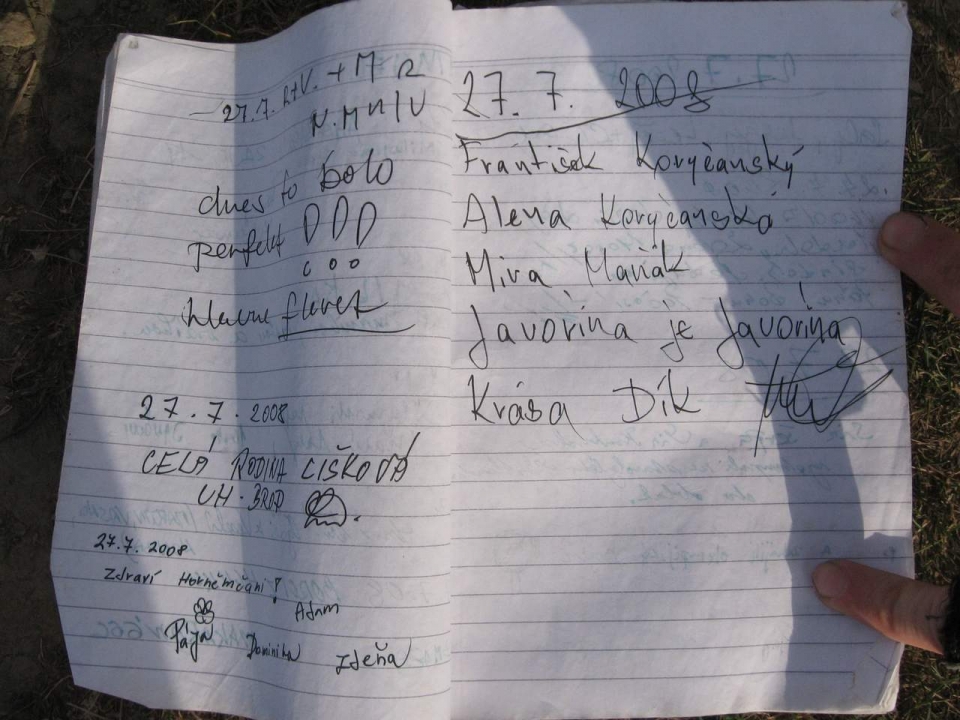 27.7. L+V. + M R
N.M n/V
dnes to bolo
perfekt !!!
hlavne flaret
27.7.2008
CELÁ RODINA LIŠKOVÁ
UH. BROD
27.7. 2008
Zdraví Horněmčani!
Adam
Pája Dominika Zdeňa
27. 7. 2008
František Koryčanský
Alena Koryčanská
Mira Maňák
Javořina je Javořina!
Krása Dík